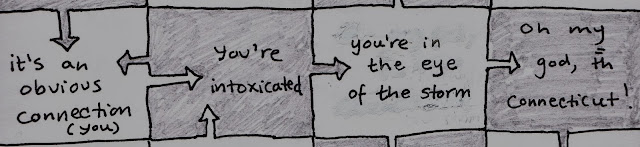 it's an
obvious
connection
(you)
you're
intoxicated
you're in
the eye
of the storm
oh my
god,
Connecticut!